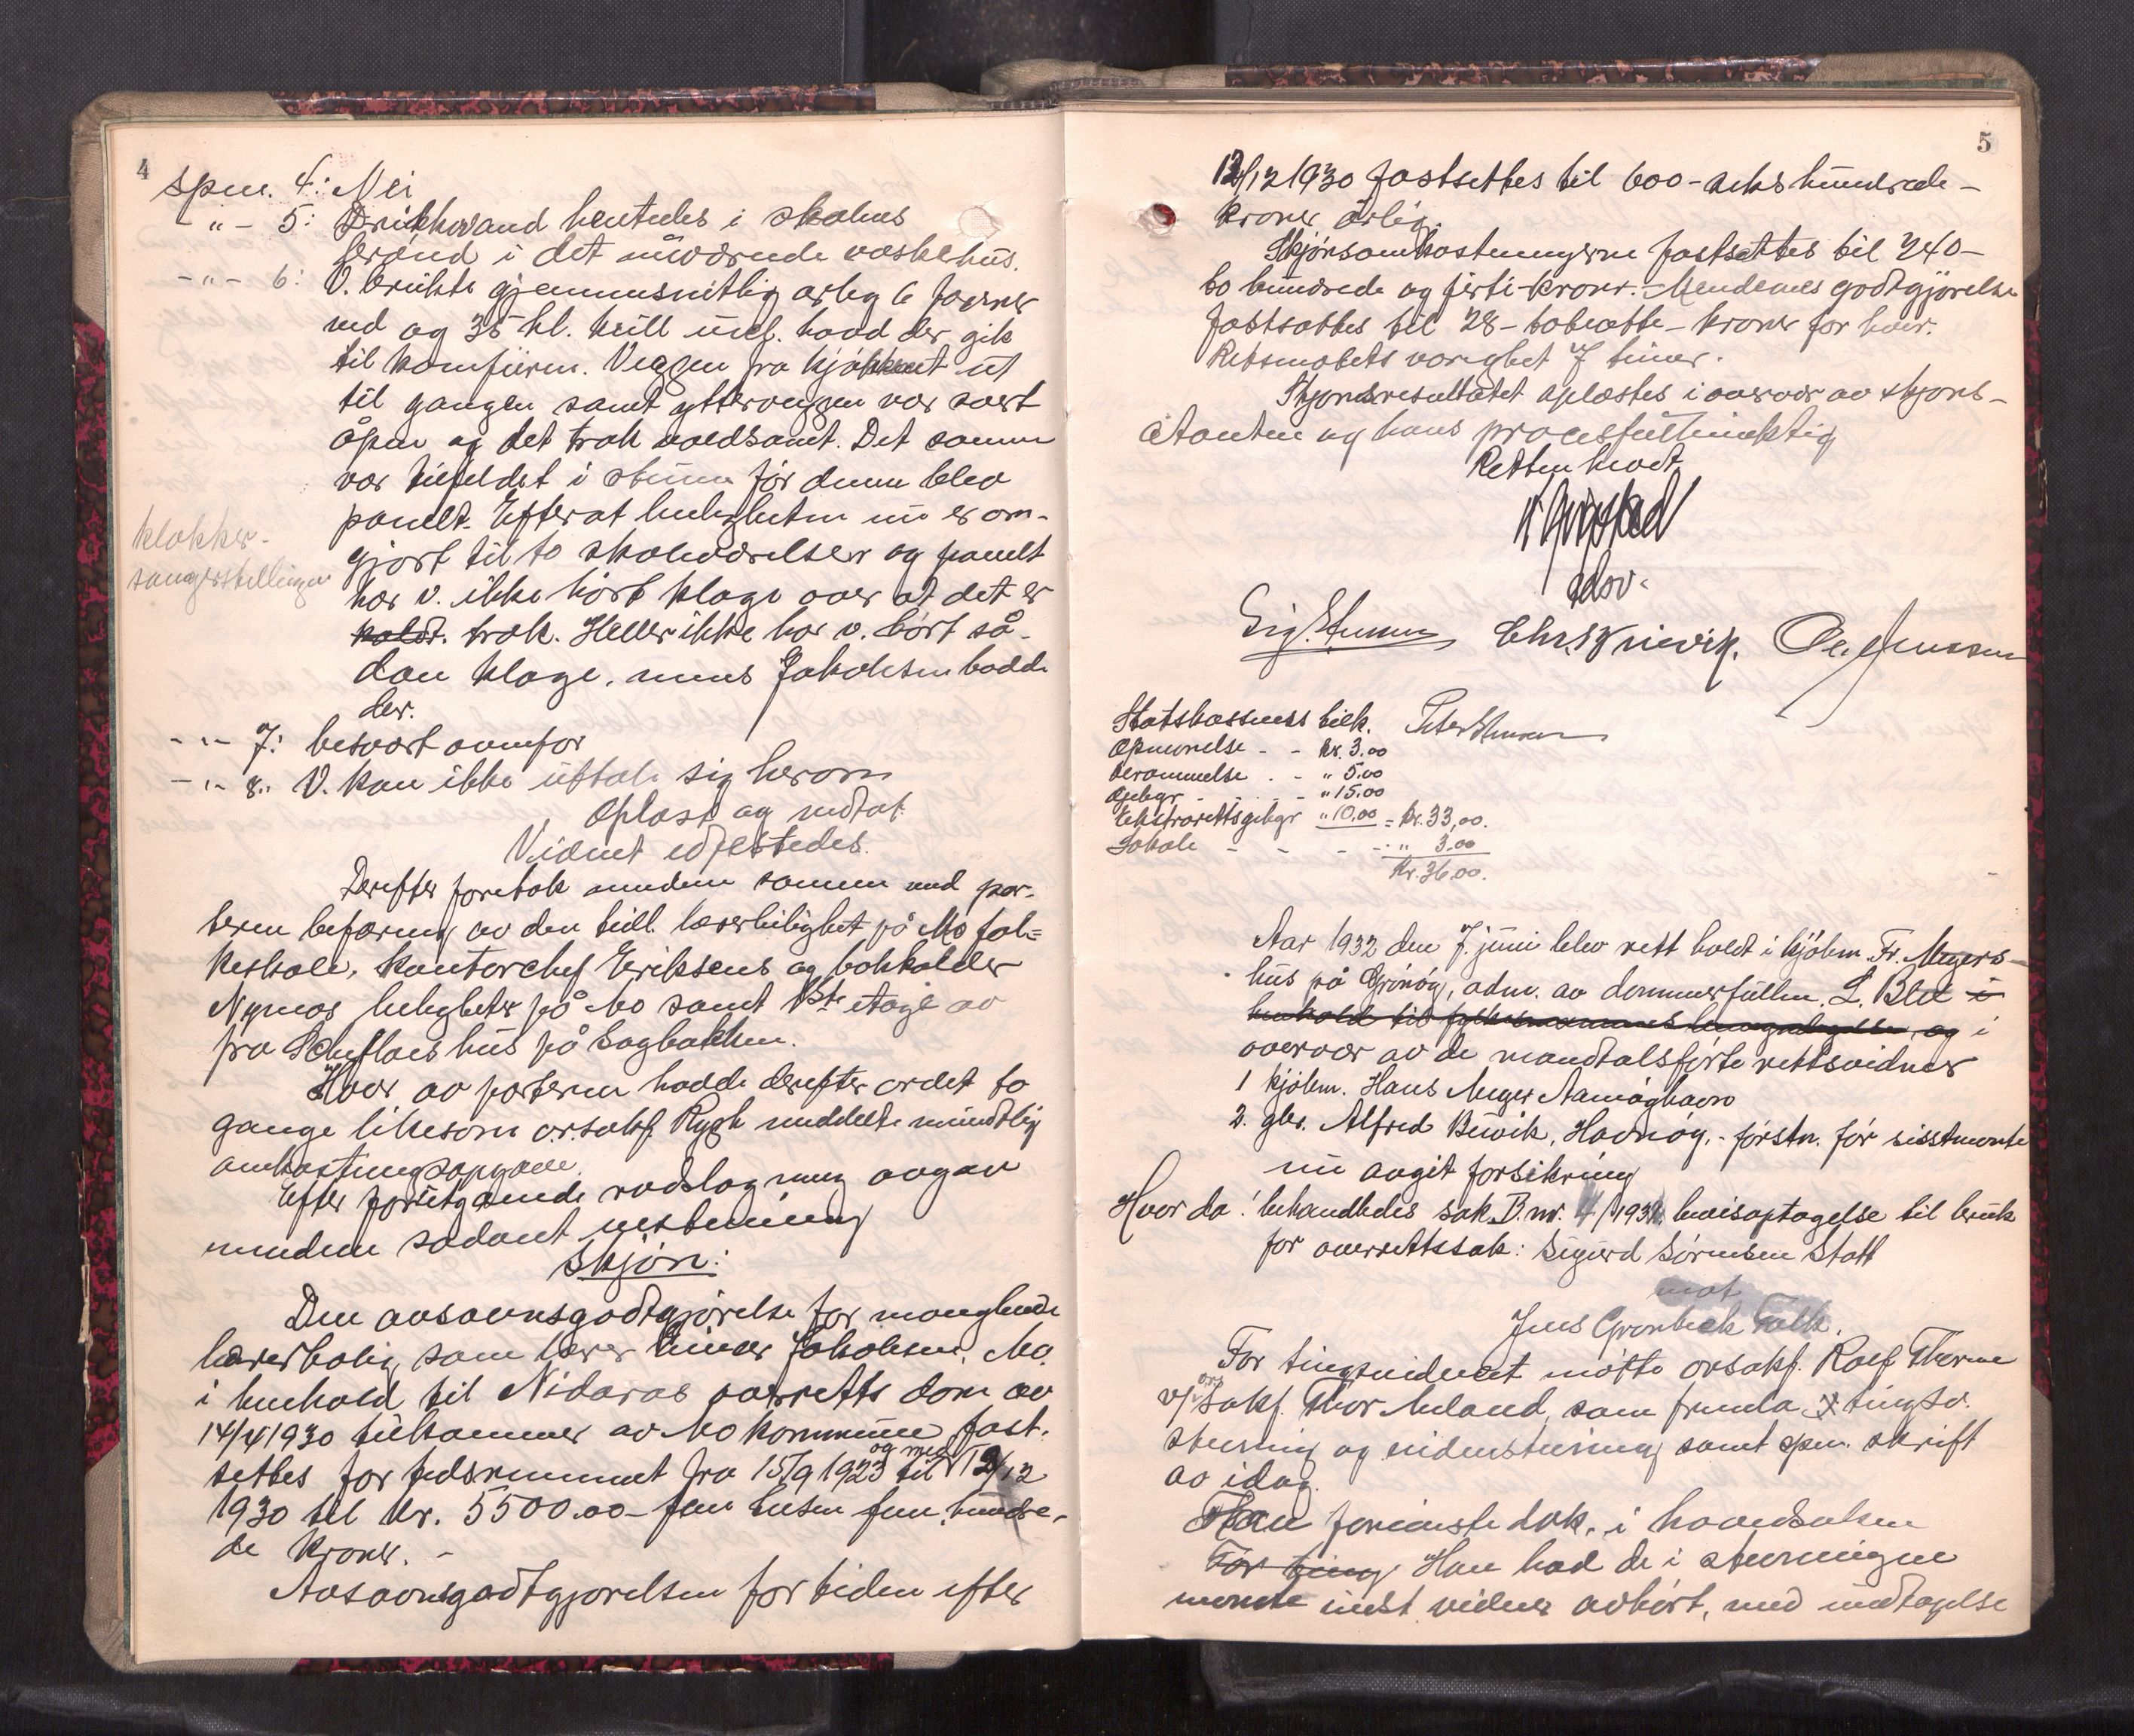 4
Spm. 4: Nei
-"- 5: Drikkevand hentedes i skolens
brønd i det nuværende vaskehus.
-"- 6: V. brukte gjennemsnitlig årlig 6 favner
ved og 35 hl. kull incl. hvad der gik
til komfuren. Veggen fra kjøkkenet ut
til gangen samt ytterveggen var svært
åpen og det trak voldsomt. Det samme
var tilfeldet i stuene før denne blev
panelt. Efter at leiligheten nu er om-
gjort til to skoleværelser og panelt
klokker-
sangerstillingen
har v. ikke hørt klage over at det er
koldt. trek. Heller ikke har v. hørt så-
dan klage, mens Jakobsen bodde
der.
-"- 7: besvart ovenfor
-"- 8: V. kan ikke uttale sig herom
Oplæst og vedtat.
Vidnet edfestedes.
Derefter foretok mendene sammen med par-
terne befaring av den tidl. lærerleilighet på Mo fol-
keskole, kontorchef Eriksens og bokholder
Nymos leiligheter på Mo samt 1ste etage av
fra Scheflos hus på Sagbakken.
Hver av parterne hadde derefter ordet to
gange likesom o.r.sakf. Rygh meddelte mundtlig
omkostningsopgave.
Efter forutgående rådslagning avgav
mendene sådant enstemmig
Skjøn:
Den avsavnsgodtgjørelse for manglende
lærerbolig, som lærer Jakobsen, Mo.
i henhold til Nidaros overretts dom av
14/4 1930 tilkommer av Mo kommune, fast-
settes for tidsrummet fra 15/9 1923 til og med 12/12
1930 til kr. 5500.00 - fem tusen fem hundre-
de kroner. -
Avsavnsgodtgjørelsen for tiden efter
5
12/12 1930 fastsettes til 600 - seks hundrede -
kroner årlig.
Skjønsomkostningerne fastsettes til 240 -
to hundrede og førti - kroner. Mendenes godtgjørelse
fastsattes til 28 - tobeotte - kroner for hver.
Retsmøtets varighet 7 timer.
Skjønsresultatet oplæstes i overvær av skjøns-
citanten og hans procesfullmektig
Retten hevet
adsv.
Sig. Chr. Ol. Jenssen
Statskassens tilk.
Opnevnelse - - kr. 3.00
Berammelse . - " 5.00
Gebyr - - - - " 15.00
Ekstrarettsgebyr " 10.00 = kr. 33,00.
Lokale - - - - " 3.00
Kr. 36.00.
Aar 1932 den 7. juni blev rett holdt i kjøbm. Fr. Meyers
hus på Grønøy, adm. av dommerfullm. L. i
henhold til fylkesmannens bemyndigelse, og i
overvær av de mandtalsførte rettsvidner
1 kjøbm. Hans Meyer Aamøyhavn
2. gbr. Alfred Buvik, Havnøy, - førstn. før sisstnevnte
nu avgit forsikring
Hvor da: behandledes sak B. nr. 4/1932, bevisoptagelse til bruk
for overrettssak: Sigurd Sørensen Stott
mot
Jens Grønbech Falk.
For tingsvidnet møtte orsakf. Rolf Therne
v/ ors sakf. Thor Meland, som fremla tingsv.
stevning og vidnestevning samt spm. skrift
av idag.
Han foreviste dok. i hovedsaken
For ting Han bad de i stevningen
nevnte innst. vidner avhørt, med undtagelse